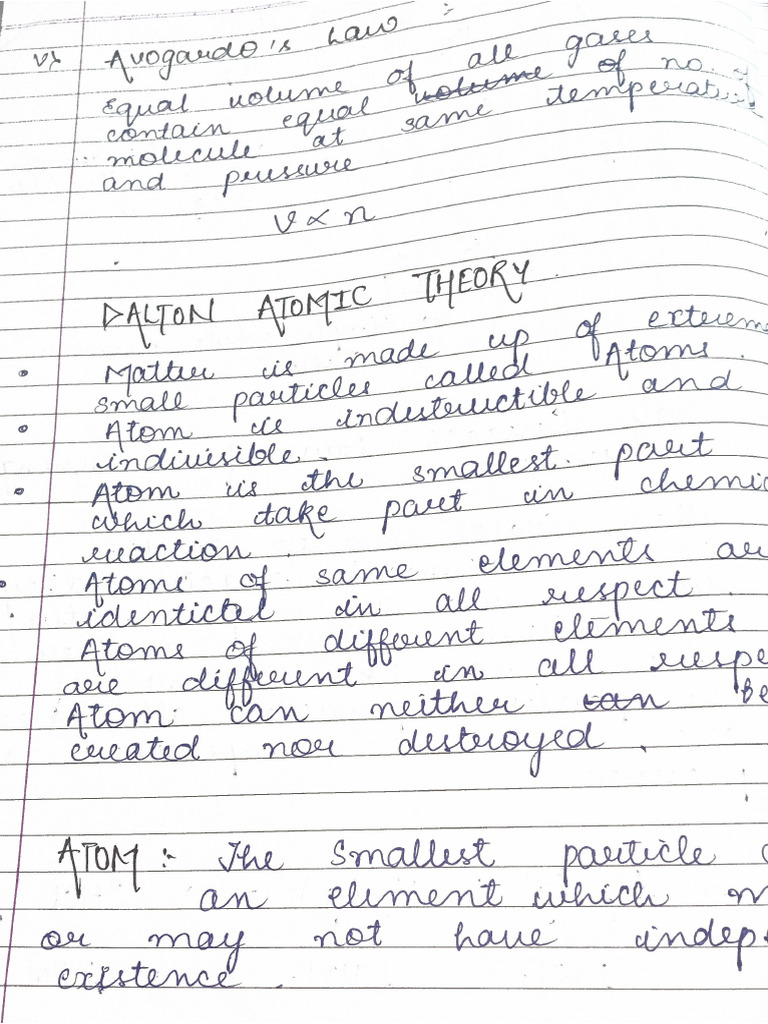 v) Avogardo's Law :-
Equal volume of all gases
contain equal volume of no.
molecule at same temperat
and pressure
V ∝ n
DALTON ATOMIC THEORY
• Matter is made up of extrem
small particles called Atoms.
• Atom is indestructible and
indivisible.
• Atom is the smallest part
which take part in chemic
reaction.
• Atoms of same elements are
• identictal in all respect.
Atoms of different elements
are different in all respe
Atom can neither can be
created nor destroyed.
ATOM :- The smallest particle
an element which m
or may not have indep
existence.